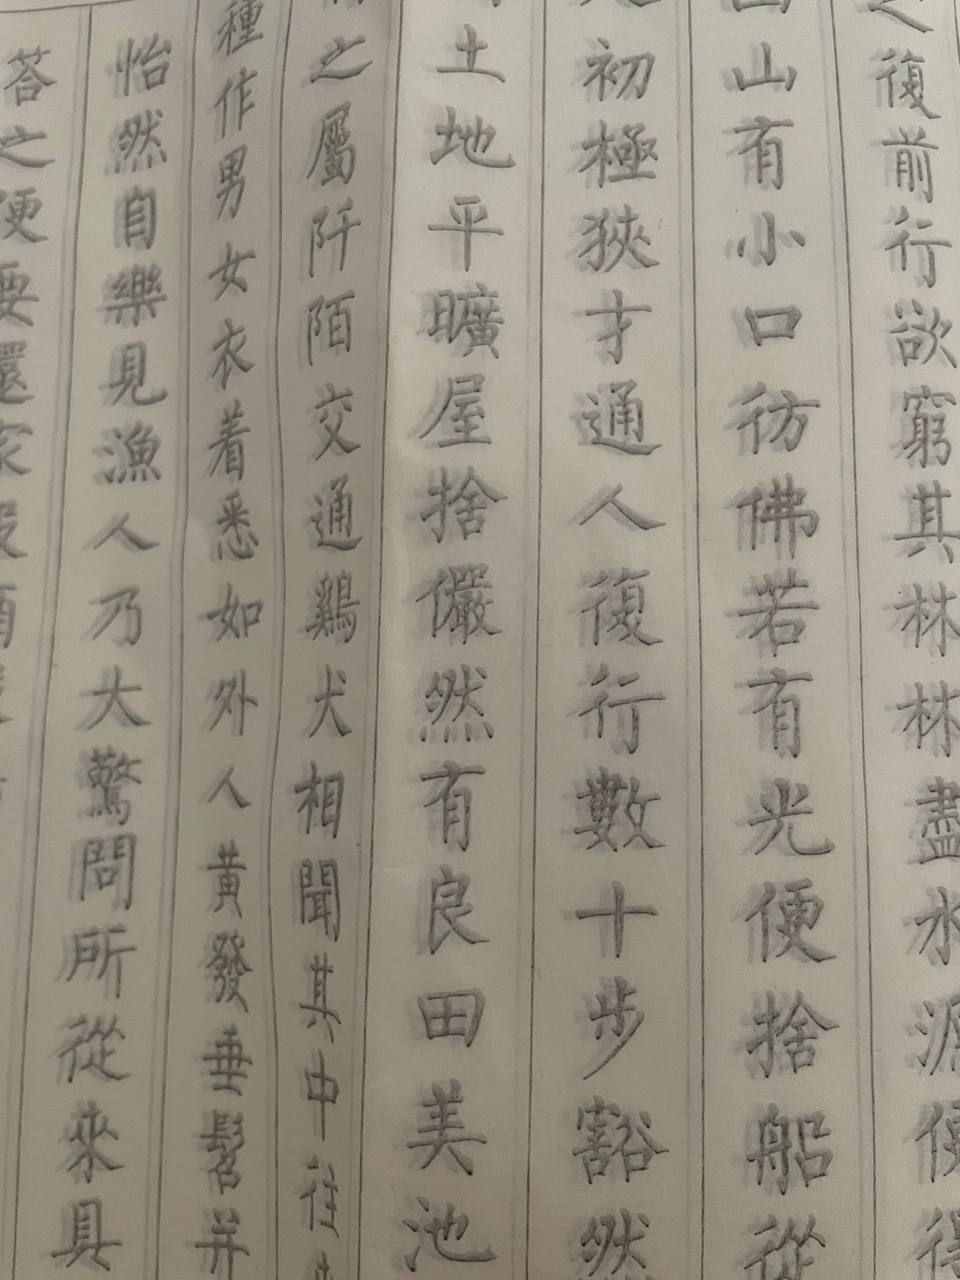 之復前行欲窮其林林盡水源便得
山山有小口彷佛若有光便捨船從
初極狹才通人復行數十步豁然
土地平曠屋捨儼然有良田美池
之屬阡陌交通鷄犬相聞其中往來
種作男女衣着悉如外人黃發垂髫并
怡然自樂見漁人乃大驚問所從來具
荅之便要還家設酒